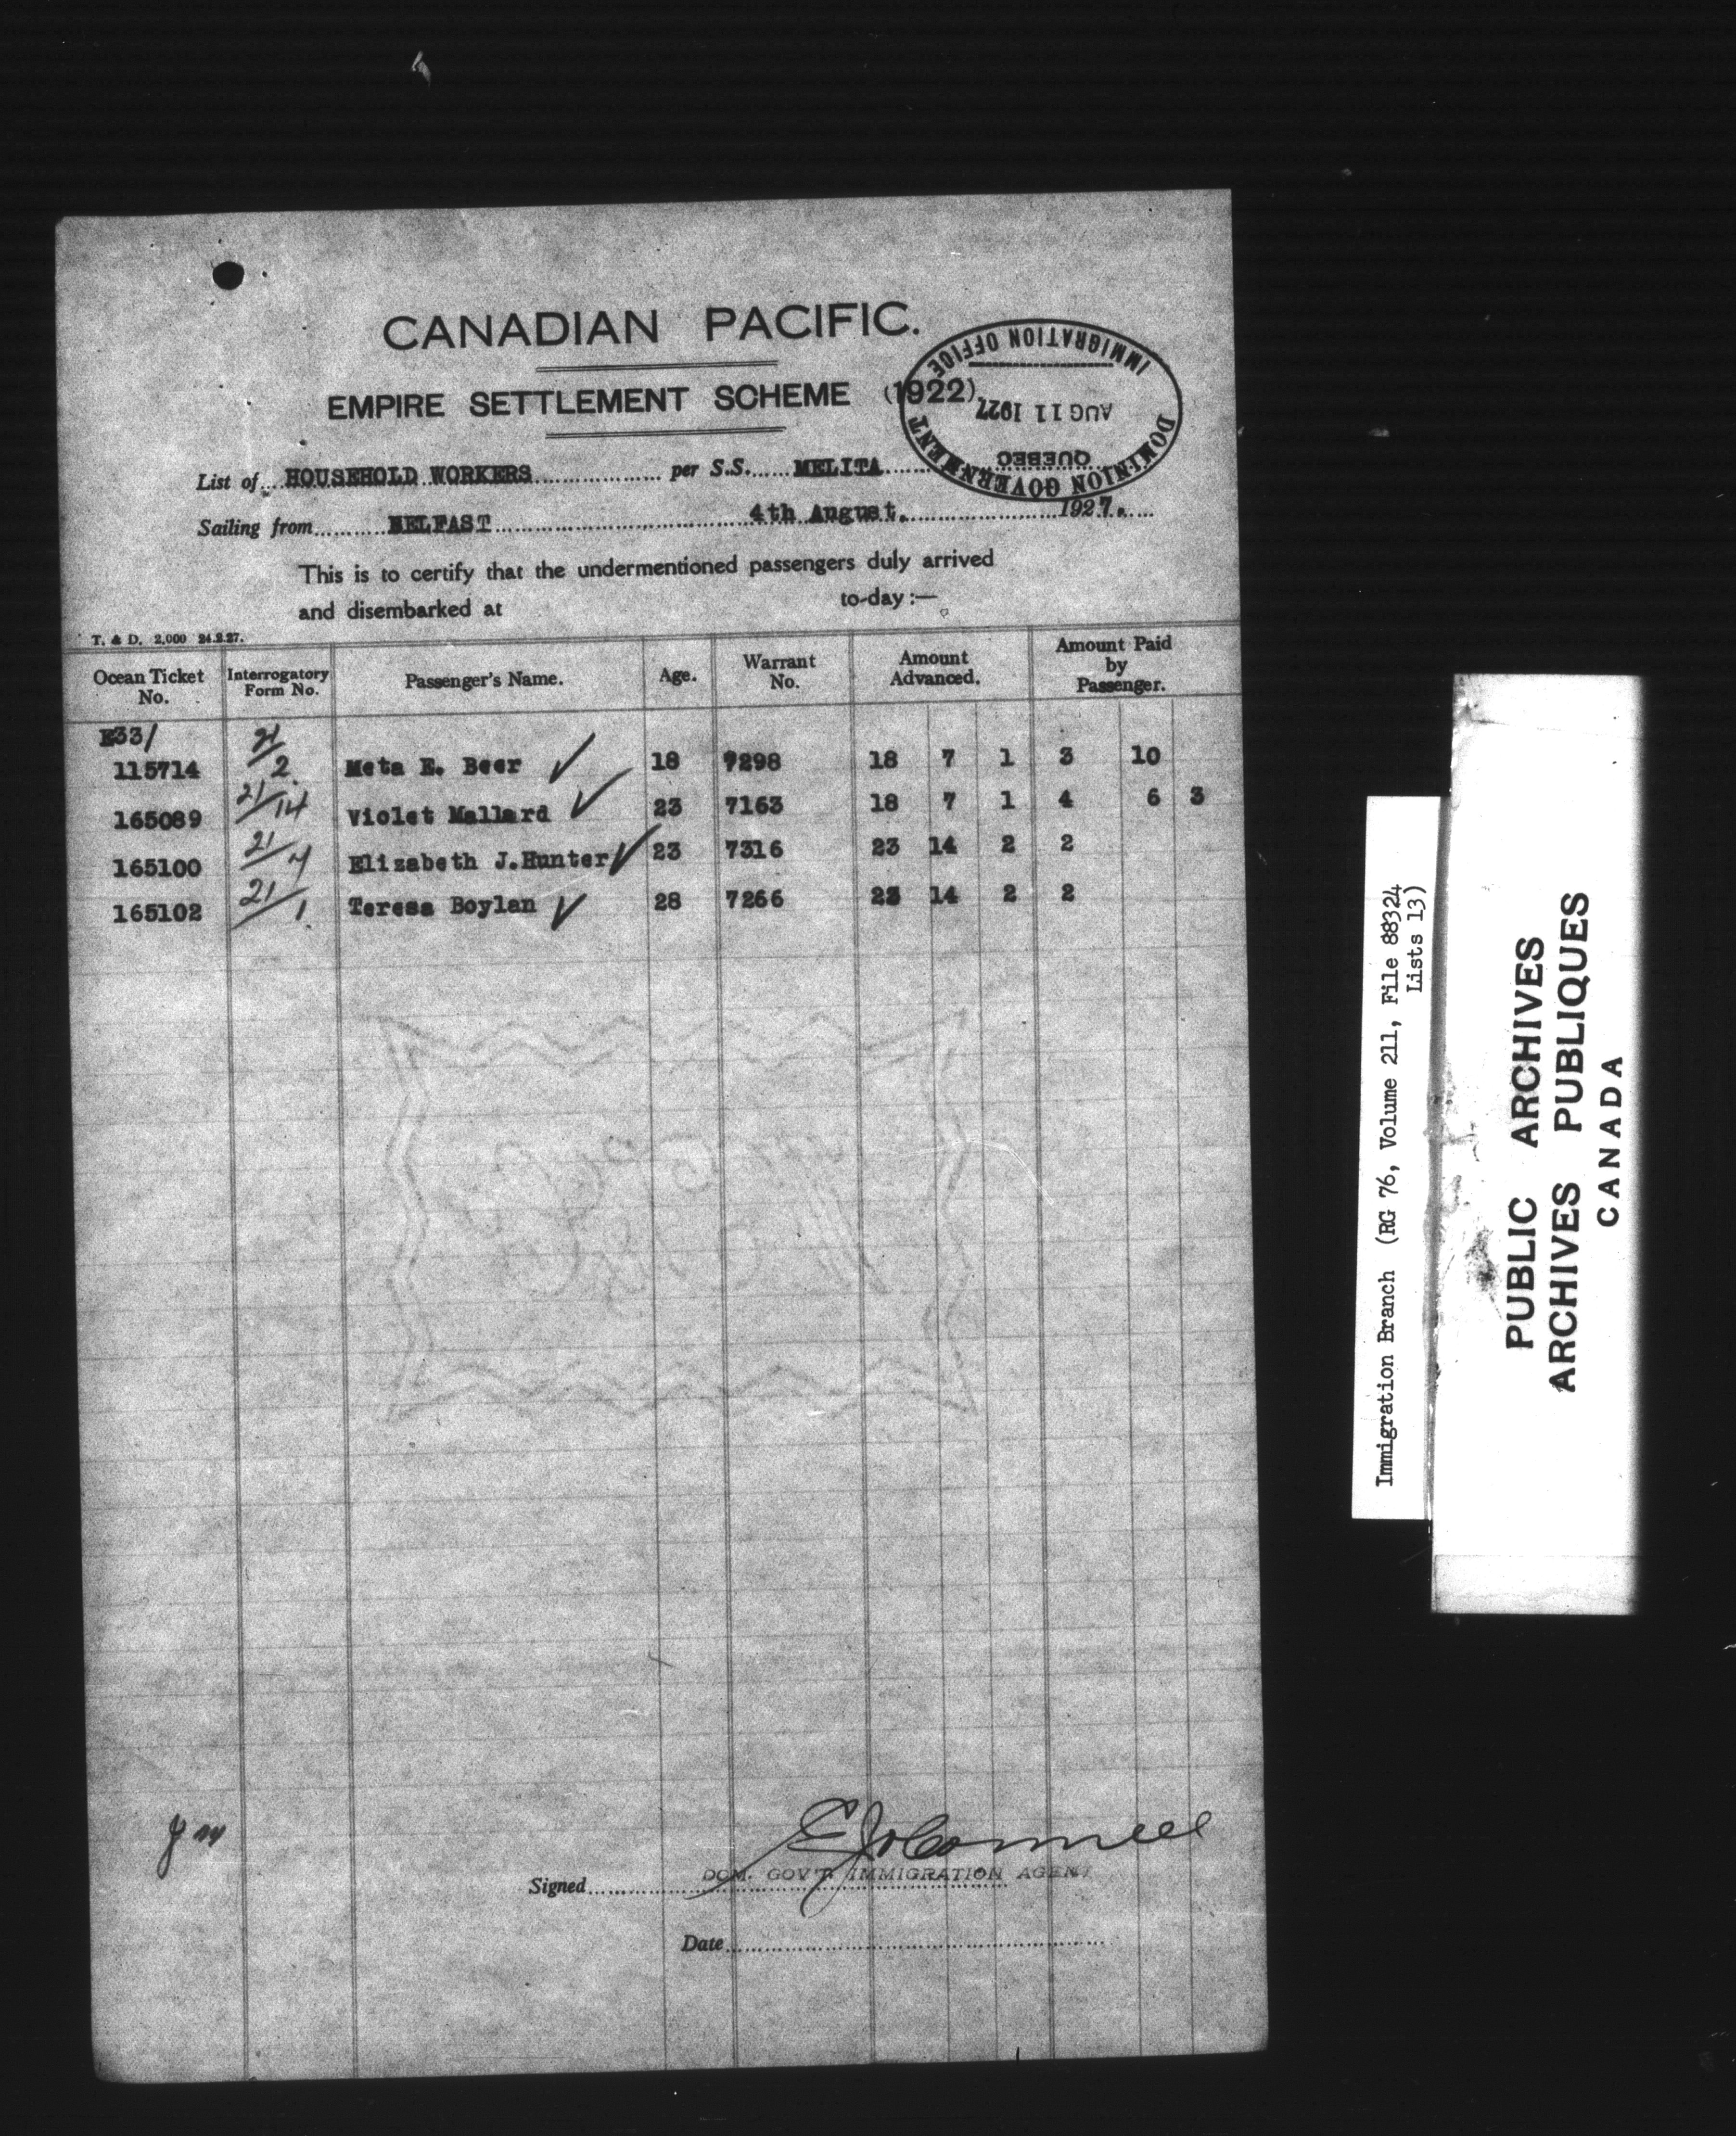 CANADIAN PACIFIC.
EMPIRE SETTLEMENT SCHEME (1922).
DOMINION GOVERNMENT
IMMIGRATION OFFICE
AUG 11 1927
QUEBEC
List of HOUSEHOLD WORKERS per S.S. MELITA
Sailing from BELFAST 4th August, 1927.
This is to certify that the undermentioned passengers duly arrived
and disembarked at to-day :—
T. & D. 2,000 24.2.27.
Ocean Ticket No. Interrogatory Form No. Passenger's Name. Age. Warrant No. Amount Advanced. Amount Paid by Passenger.
E33/
115714 21/2. Meta E. Beer ✓ 18 7298 18 7 1 3 10
165089 21/14 Violet Mallard ✓ 23 7163 18 7 1 4 6 3
165100 21/4 Elizabeth J.Hunter ✓ 23 7316 23 14 2 2
165102 21/1. Teresa Boylan ✓ 28 7266 23 14 2 2
Signed
DOM. GOV'T. IMMIGRATION AGENT
Date
Immigration Branch (RG 76, Volume 211, File 88324
Lists 13)
PUBLIC ARCHIVES
ARCHIVES PUBLIQUES
CANADA